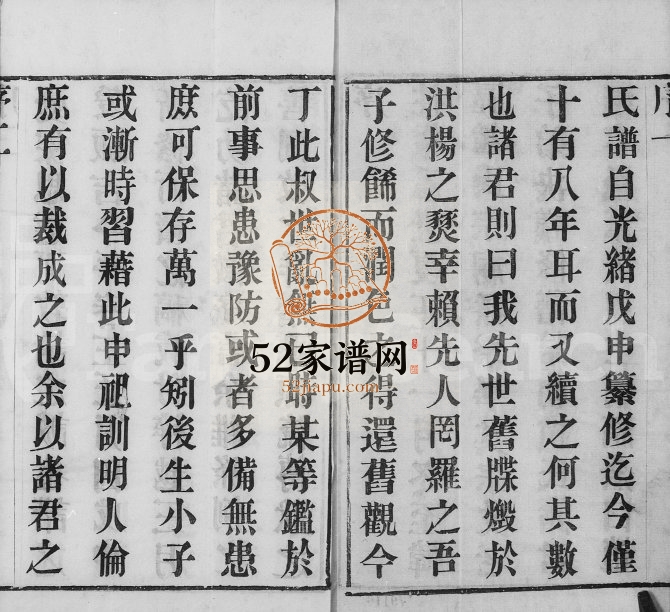 氏譜自光緒戊申纂修迄今僅
十有八年耳而又續之何其數
也諸君則曰我先世舊牒燬於
洪楊之燹幸賴先人罔羅之吾
子修餙而潤色得還舊觀今
丁此叔世亂無已時某等鑑於
前事思患豫防或者多備無患
庶可保存萬一乎矧後生小子
或漸時習藉此申祖訓明人倫
庶有以裁成之也余以諸君之
52家谱网
52jiapu.com